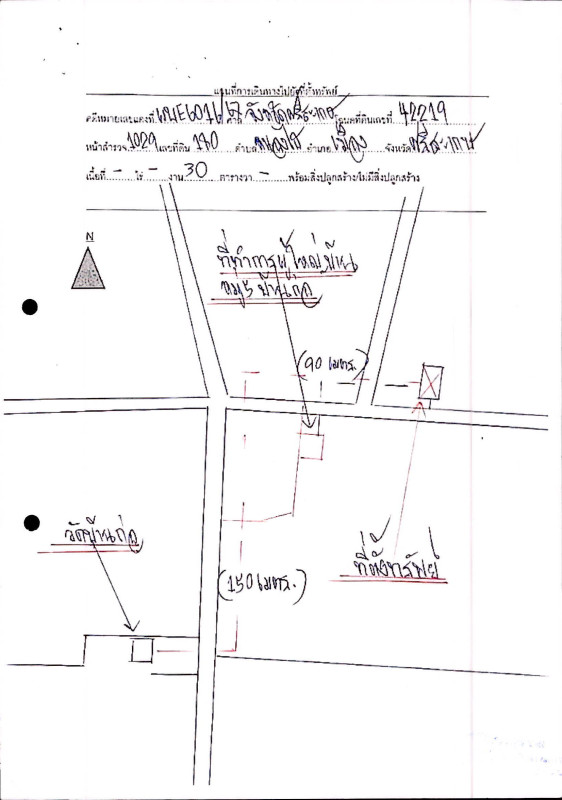 แผนที่การเดินทางไปยังที่ตั้งทรัพย์
คดีหมายเลขแดงที่ ผบE6016/67 จังหวัดศรีสะเกษ โฉนดที่ดินเลขที่ 42219
หน้าสำรวจ 1029 เลขที่ดิน 180 ตำบล อำเภอ เมือง จังหวัด ศรีสะเกษ
เนื้อที่ - ไร่ - งาน 30 ตารางวา - พร้อมสิ่งปลูกสร้าง/ไม่มีสิ่งปลูกสร้าง
N
ที่ทำการผู้ใหญ่บ้าน
หมู่5 บ้านก่อ
(90 เมตร.)
วัดบ้านก่อ
ที่ตั้งทรัพย์
(150 เมตร.)